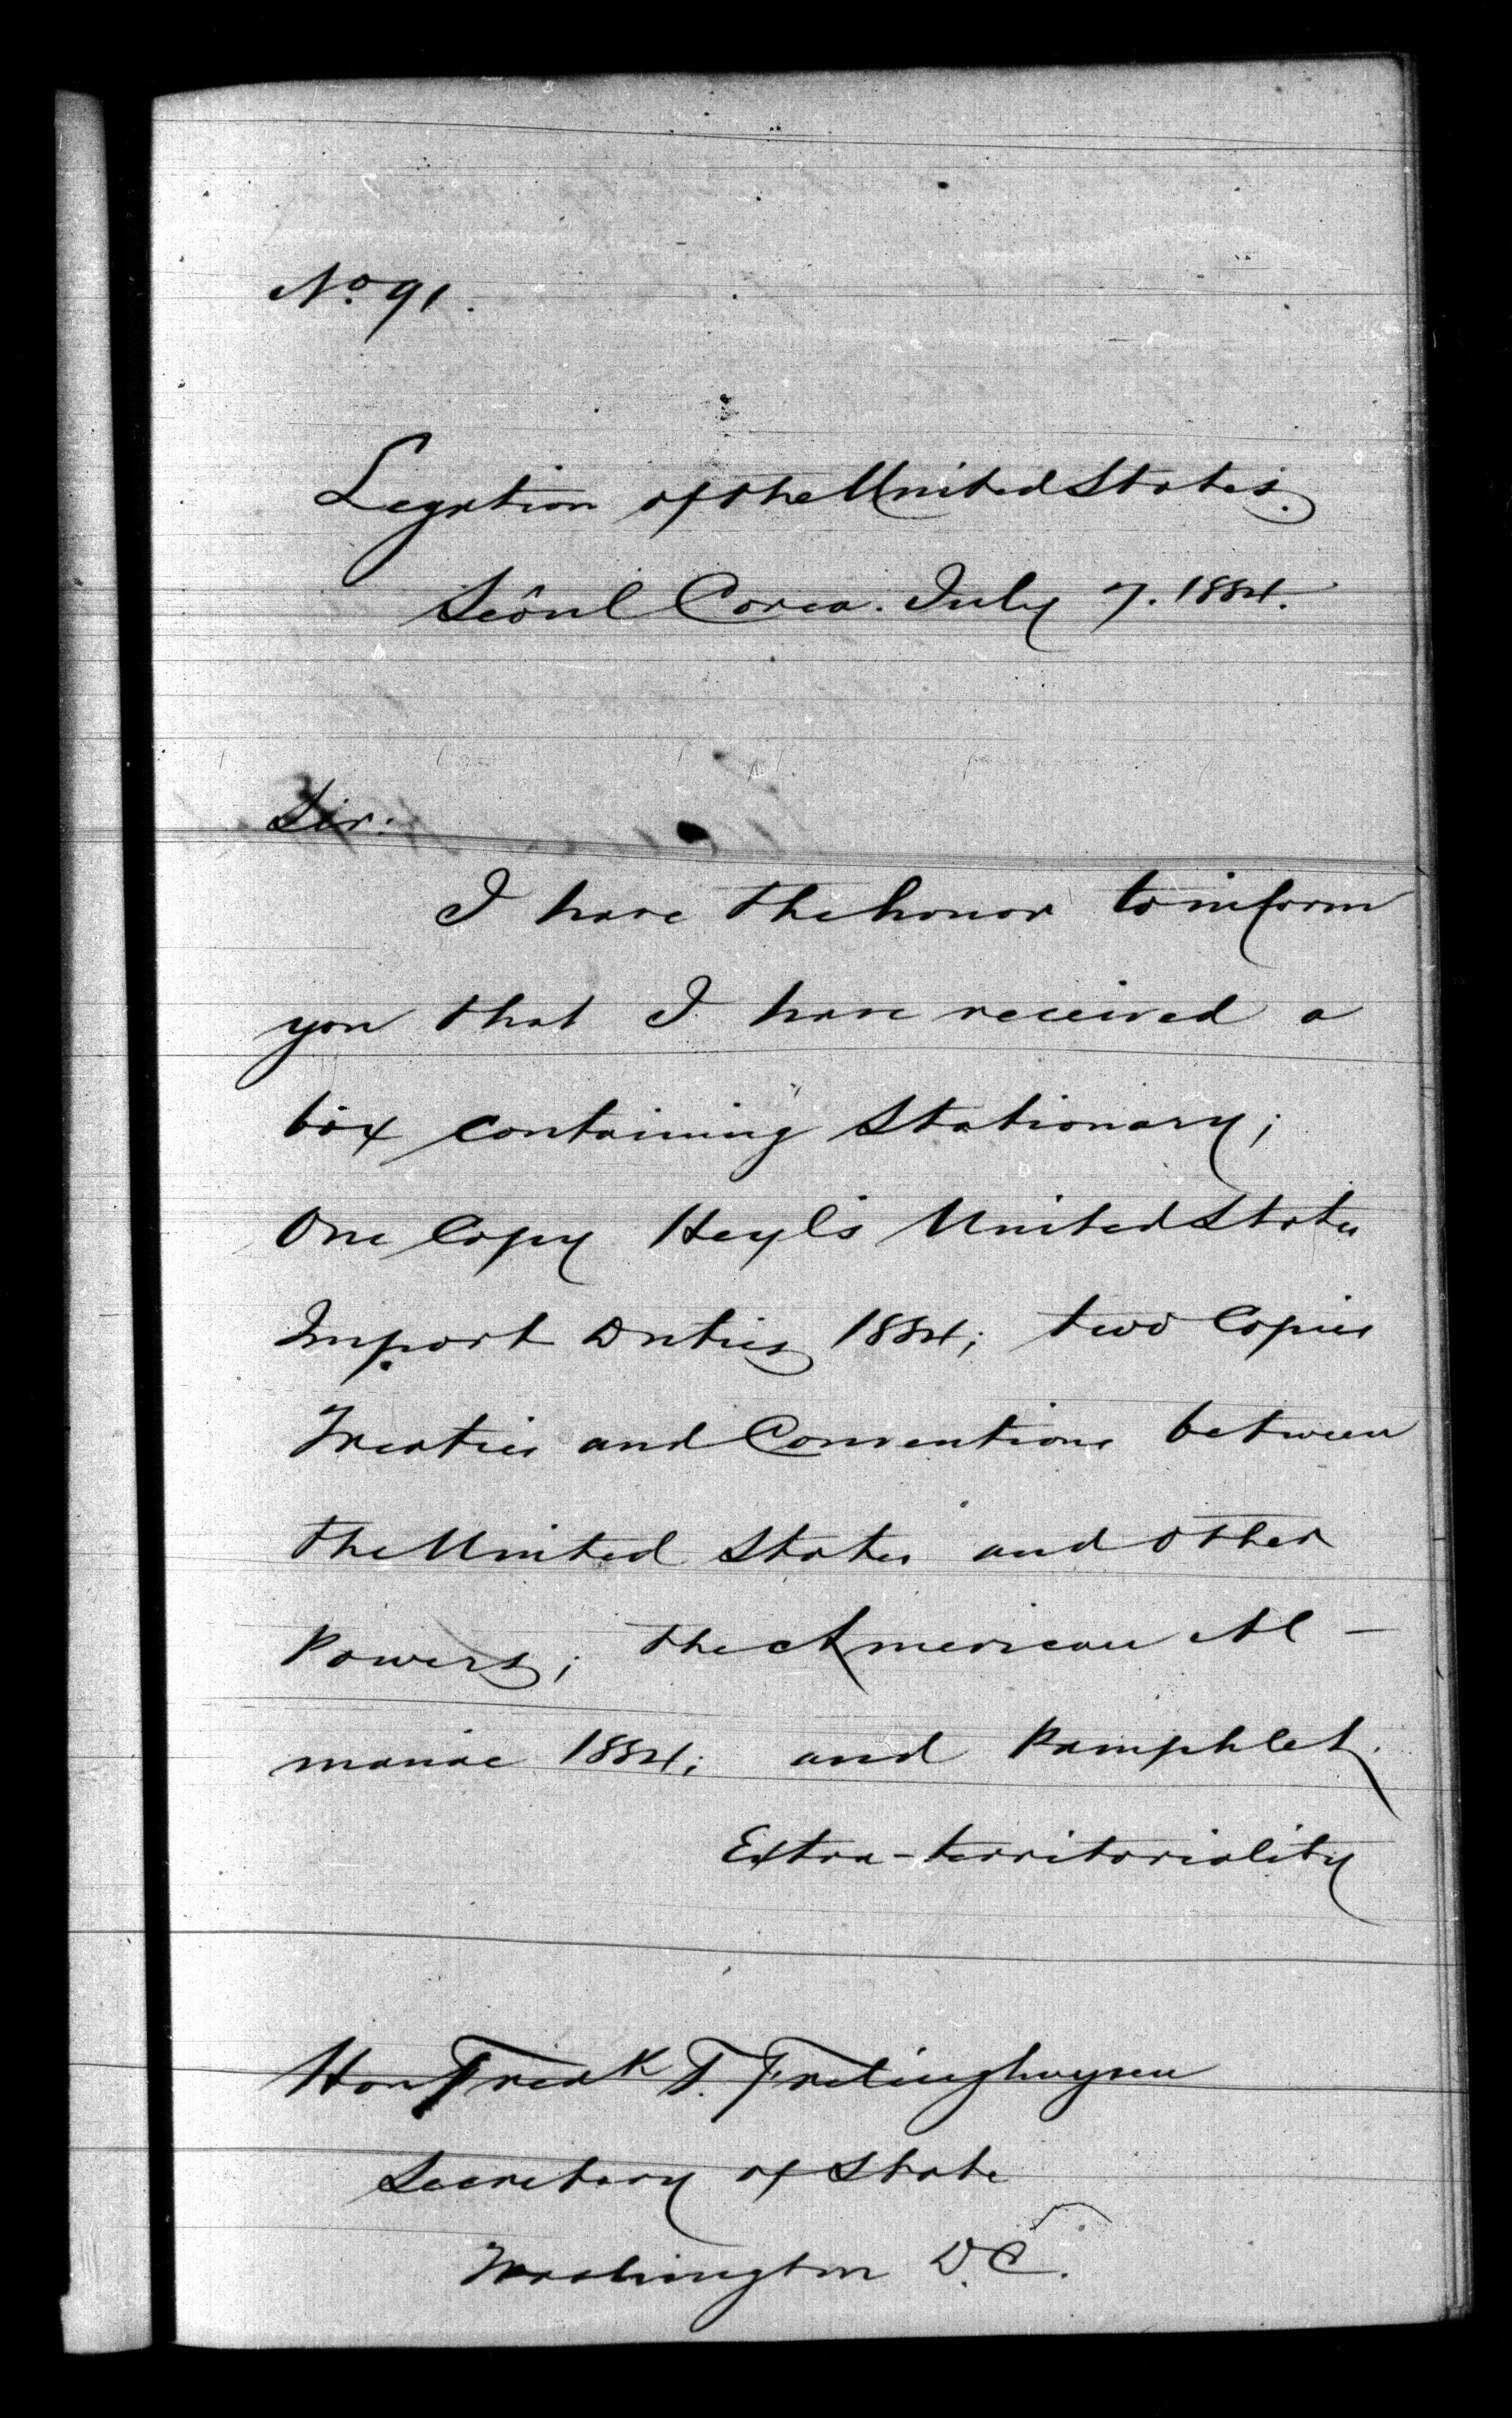 No. 91.
Legation of the United States.
Seôul Corea. July 7. 1884.
Sir:
I have the honor to inform
you that I have received a
box containing Stationary;
One Copy Heyl's United States
Import Duties 1884; two Copies
Treaties and Conventions between
the United States and Other
Powers; the American Al-
manac 1884; and Pamphlet.
Extra-territoriality
Hon Fredk T. Frelinghuysen
Secretary of State
Washington D.C.